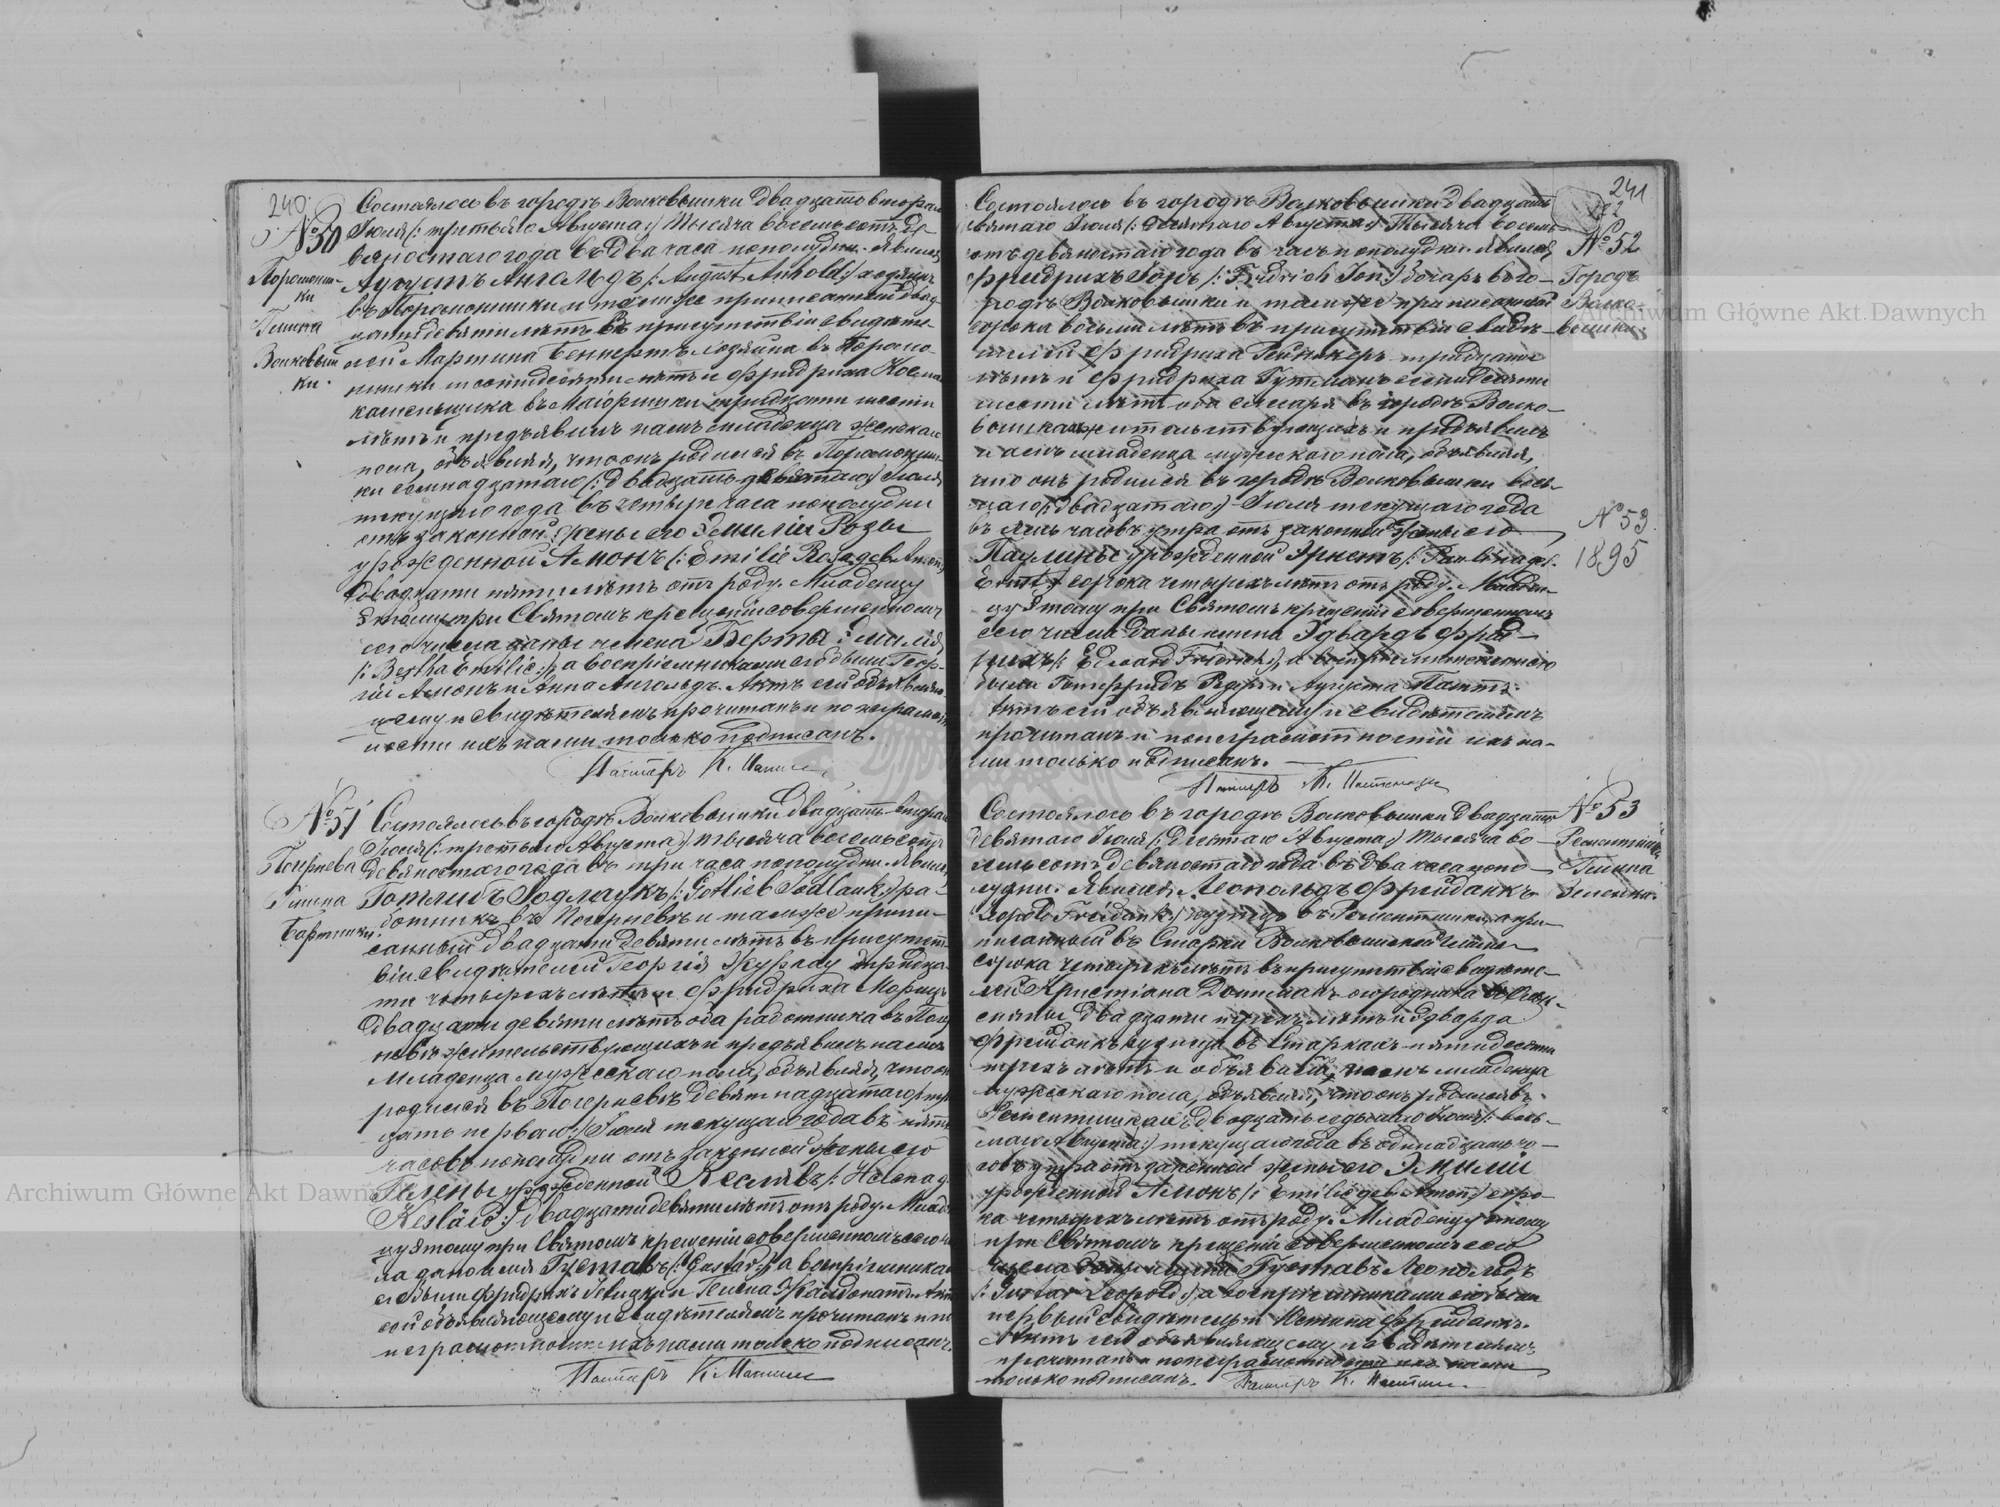 240.
№50
Поромониш-
ки
Гмина
Волковыш
ки.
Состоялось въ городѣ Волковышки двадцать втораго
Іюля (: третьяго Августа:) тысяча восемьсотъ де-
вяностаго года въ два часа пополудни. Явился
Августъ Ангольдъ (: August Anhold:) хозяинъ
въ Поромонишки и тамъ же приписанный двад-
цати девяти лѣтъ въ присутствіи свидѣте-
лей Мартина Беннертъ хозяина въ Поромо-
нишки шестидесяти лѣтъ и Фридриха
каменьщика въ тридцати шести
лѣтъ и предъявилъ намъ младенца женскаго
пола, объявляя, что онъ родился въ Поромониш-
ки семнадцатаго (: двадцать девятаго:) Іюля
текущаго года въ четыре часа пополудни
отъ законной жены его Эмиліи Розы
урожденной Амонъ (: Emilie Rosa geb. Amon:)
двадцати пяти лѣтъ отъ роду. Младенцу
этому при Святомъ крещеніи совершенномъ
сего числа даны имена Берта Эмилія
(: Bertha Emilie:) а воспріемниками его были Геор-
гій Амонъ и Анна Ангольдъ. Актъ сей объявляю-
щему и свидѣтелямъ прочитанъ и по неграмот-
ности ихъ нами только подписанъ.
Пасторъ К.
№51
Погернева
Гмина
Бартники.
Состоялось въ городѣ Волковышки двадцать втораго
Іюля (: третьяго Августа:) тысяча восемьсотъ
девяностаго года въ три часа пополудни. Явился
Готлибъ Іодлаукъ (: Gotlieb Jodlauk:) ра-
ботникъ въ Погерневѣ и тамъ же припи-
санный двадцати девяти лѣтъ въ присутст-
віи свидѣтелей Георгія тридца-
ти четырехъ лѣтъ и ФридрихаМорицъ
двадцати девяти лѣтъ оба работника въ Погер-
невѣ жительствующихъ и предъявилъ намъ
младенца мужескаго пола, объявляя, что онъ
родился въ Погерневѣ девятнадцатаго (: трид-
цать перваго:) Іюля текущаго года въ пять
часовъ пополудни отъ законной жены его
Гелены урожденной Кеслявъ (: Helena g.
Kesläw:) двадцати девяти лѣтъ отъ роду. Младен-
цу этому при Святомъ крещеніи совершенномъ сего чи-
сла дано имя Густавъ (: Gustav:) а воспріемниками
его были Фридрихъ и Гелена Актъ
сей объявляющему и свидѣтелямъ прочитанъ и по
неграмотности ихъ нами только подписанъ.
Пасторъ К.
241
Состоялось въ городѣ Волковышки двадцать
девятаго Іюля (: десятаго Августа:) тысяча восемь-
сотъ девяностаго года въ часъ пополудни. Явился
Фридрихъ Іонъ (: Fridrich Jon:) въ го-
родѣ Волковышки и тамъ же приписанный
сорока восьми лѣтъ въ присутствіи свидѣ-
телей Фридриха тридцати
лѣтъ и Фридриха Гутманъ семидесяти
шести лѣтъ оба слесаря въ городѣ Волко-
вышкахъ жительствующихъ и предъявилъ
намъ младенца мужескаго пола, объявляя,
что онъ родился въ городѣ Волковышки вось-
маго (: двадцатаго:) Іюля текущаго года
въ семь часовъ утра отъ законной жены его
Паулины урожденной Эрнстъ (: Paulina geb.
Ernst:) сорока четырехъ лѣтъ отъ роду. Младен-
цу этому при Святомъ крещеніи совершенномъ
сего числа даны имена Эдвардъ Фрид-
рихъ (: Edward Fridrich:), а воспріемниками его
были Готфридъ и Августа
Актъ сей объявляющему и свидѣтелямъ
прочитанъ и по неграмотности ихъ на-
ми только подписанъ.
Пасторъ К.
№52
Городъ
Волко-
вышки
№53.
1895
Состоялось въ городѣ Волковышки двадцать
девятаго Іюля (: десятаго Августа:) тысяча во-
семьсотъ девяностаго года въ два часа попо-
лудни. Явился Леопольдъ Фрейданкъ
(: Leopold Freidank:) кузнецъ въ а при-
писанный въ Старки Волковышской гмины
сорока четырехъ лѣтъ въ присутствіи свидѣте-
лей Христіана огородника
двадцати трехъ лѣтъ и Эдварда
Фрейданкъ кузнеца въ Старкахъ пятидесяти
трехъ лѣтъ и объявилъ намъ младенца
мужескаго пола, объявляя, что онъ родился въ
двадцать седьмаго Іюля (: вось-
маго Августа:) текущаго года въ одинадцать ча-
совъ утра отъ законной жены его Эмиліи
урожденной Амонъ (: Emilie geb. Amon:) соро-
ка четырехъ лѣтъ отъ роду. Младенцу этому
при Святомъ крещеніи совершенномъ сего
числа даны имена Густавъ Леопольдъ
(: Gustav Leopold:) а воспріемниками его были
первый свидѣтель и Фрейданкъ.
Актъ сей объявляющему и свидѣтелямъ
прочитанъ и по неграмотности ихъ нами
только подписанъ. Пасторъ К.
№53
Гмина
Зеленка.
Archiwum Główne Akt Dawnych
Archiwum Główne Akt Dawnych